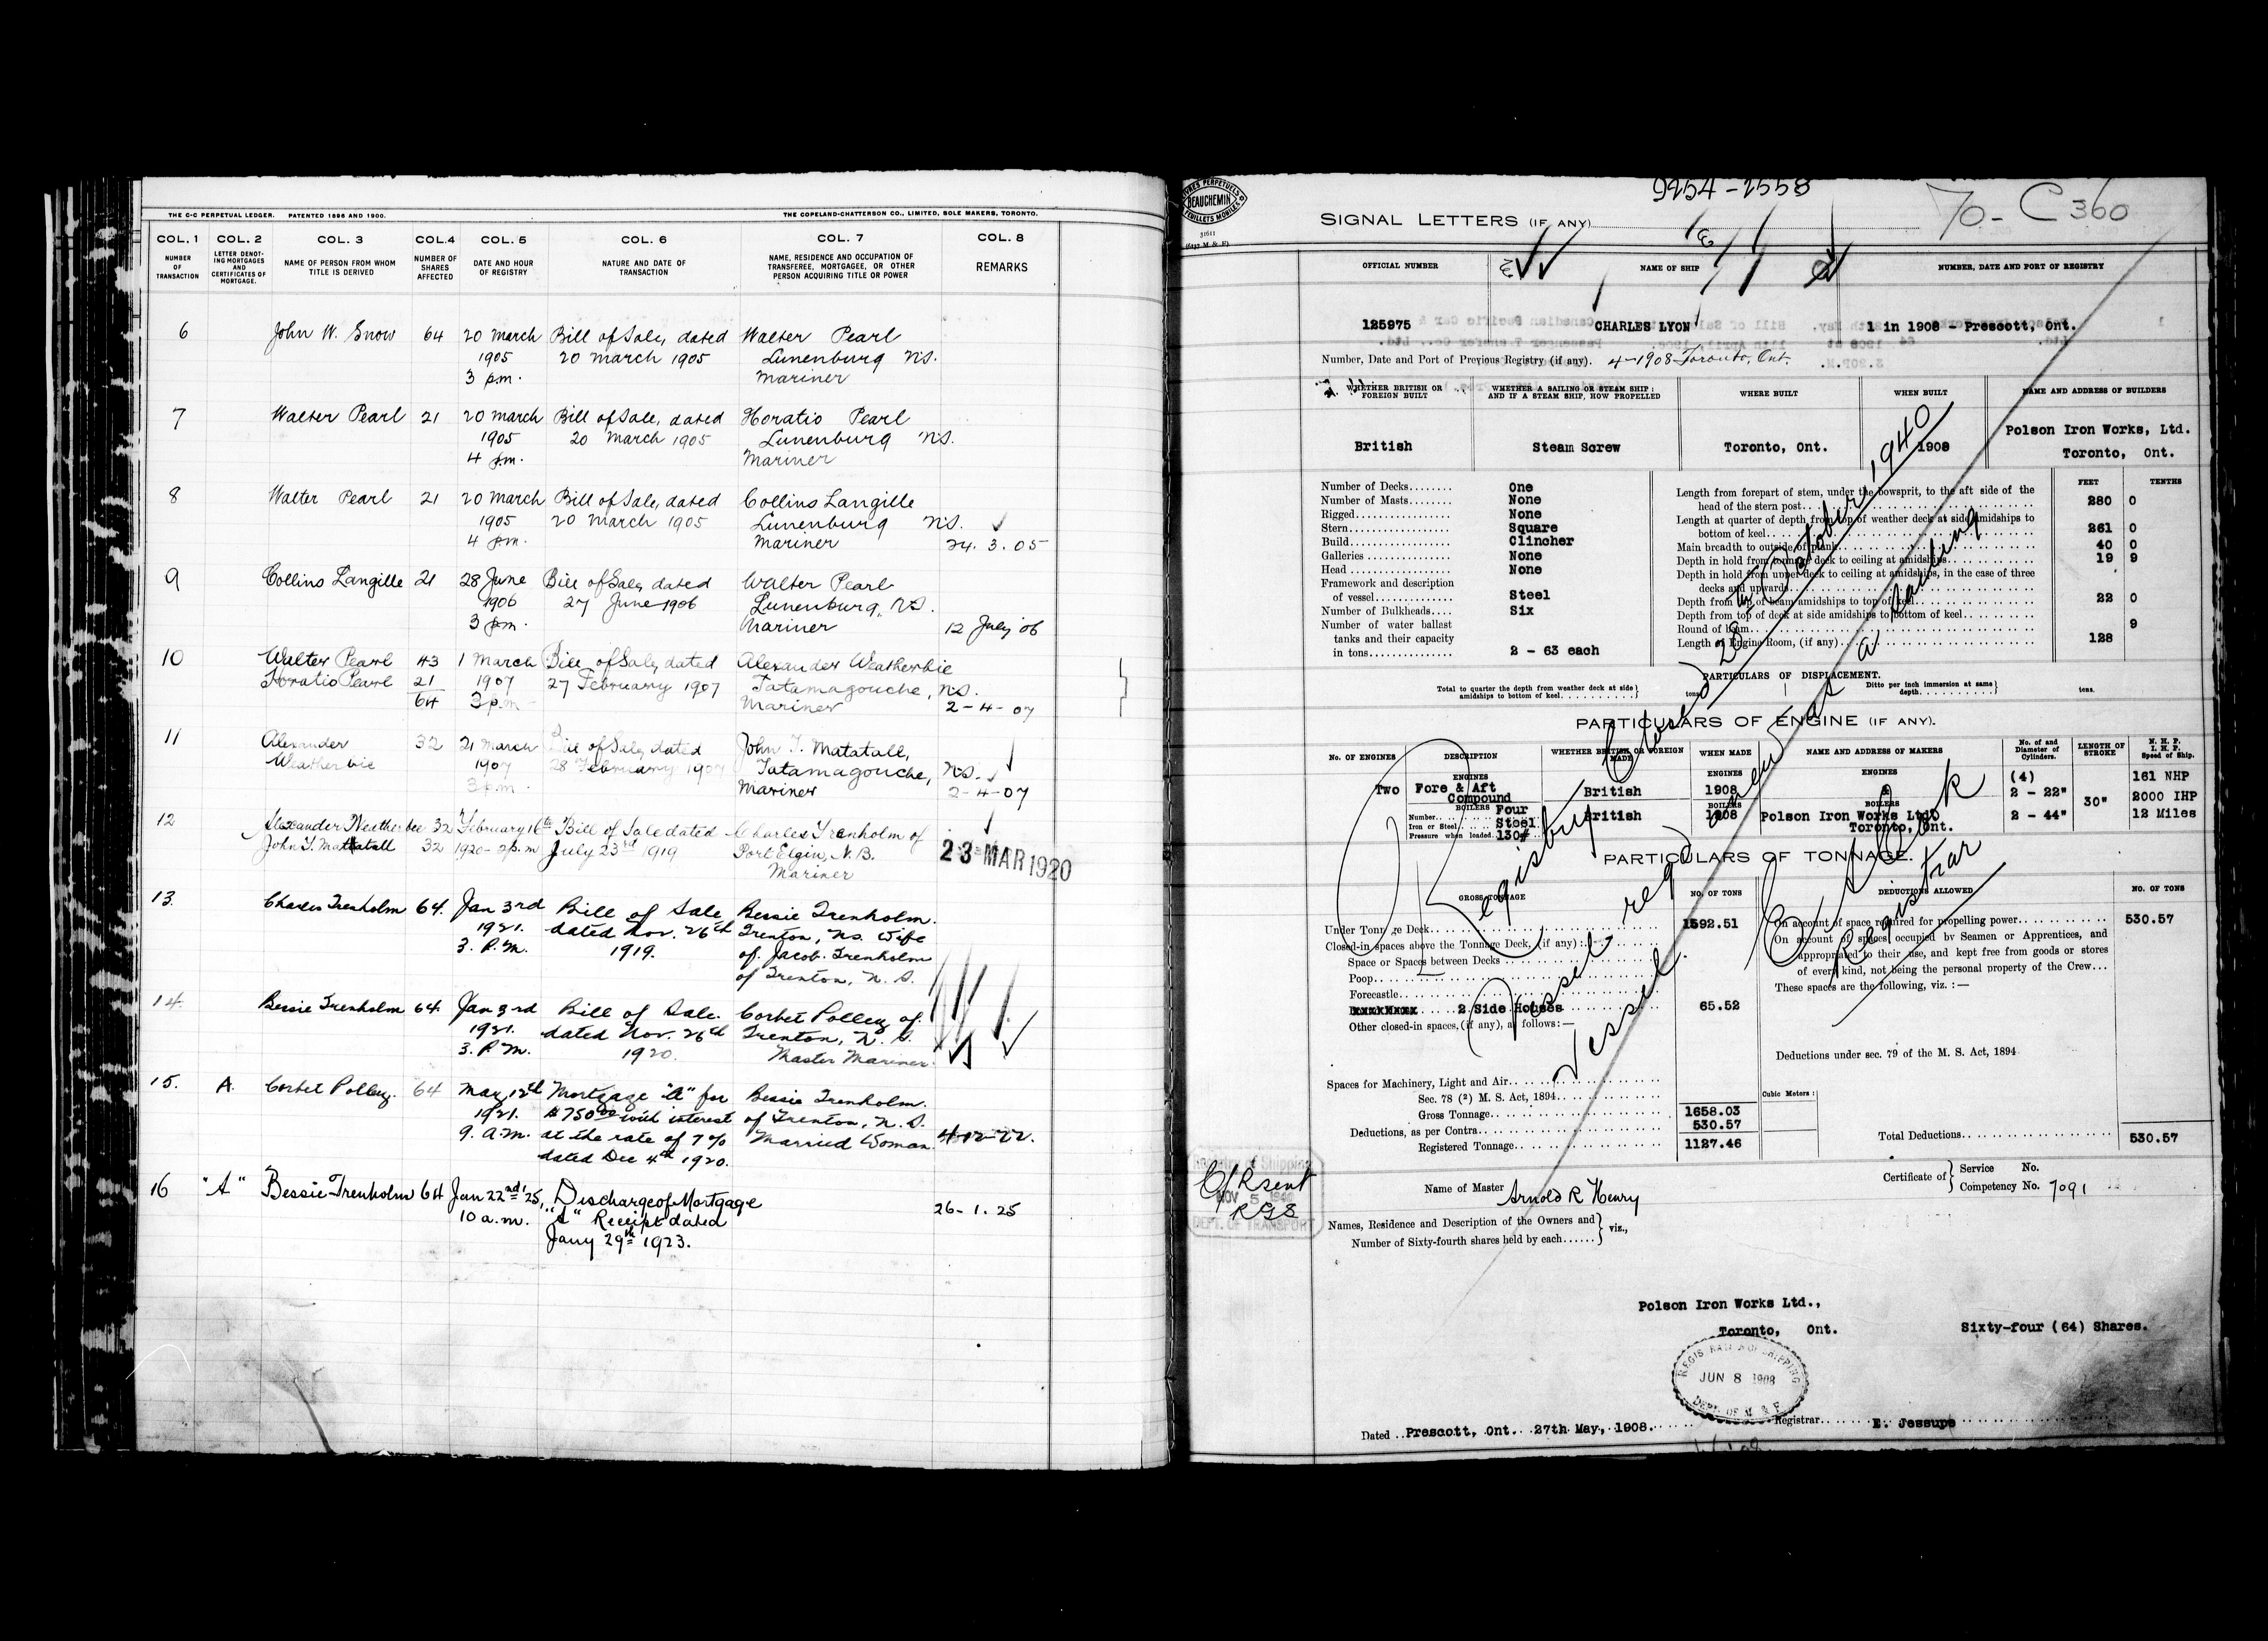 THE C-C PERPETUAL LEDGER. PATENTED 1896 AND 1900. THE COPELAND-CHATTERSON CO., LIMITED, SOLE MAKERS, TORONTO.
COL. 1 COL. 2 COL. 3 COL. 4 COL. 5 COL. 6 COL. 7 COL. 8
NUMBER OF TRANSACTION
LETTER DENOTING MORTGAGES AND CERTIFICATES OF MORTGAGE.
NAME OF PERSON FROM WHOM TITLE IS DERIVED
NUMBER OF SHARES AFFECTED
DATE AND HOUR OF REGISTRY
NATURE AND DATE OF TRANSACTION
NAME, RESIDENCE AND OCCUPATION OF TRANSFEREE, MORTGAGEE, OR OTHER PERSON ACQUIRING TITLE OR POWER
REMARKS
6 John W. Snow 64 20 March Bill of Sale, dated Walter Pearl
1905 20 March 1905 Lunenburg N.S.
3 p.m. Mariner
7 Walter Pearl 21 20 March Bill of Sale, dated Horatio Pearl
1905 20 March 1905 Lunenburg N.S.
4 p.m. Mariner
8 Walter Pearl 21 20 March Bill of Sale, dated Collins Langille
1905 20 March 1905 Lunenburg N.S.
4 p.m. Mariner 24.3.05
9 Collins Langille 21 28 June Bill of Sale, dated Walter Pearl
1906 27 June 1906 Lunenburg, N.S.
3 p.m. Mariner 12 July '06
10 Walter Pearl 43 1 March Bill of Sale, dated Alexander Weatherbie
Horatio Pearl 21 1907 27 February 1907 Tatamagouche, N.S.
64 3 p.m. Mariner 2-4-07
11 Alexander 32 21 March Bill of Sale, dated John T. Matatall,
Weatherbie 1907 28 February 1907 Tatamagouche, N.S.
3 p.m. Mariner 2-4-07
12 Alexander Weatherbee 32 February 16th Bill of Sale dated Charles Trenholm of
John T. Matatall 32 1920 - 2 p.m July 23rd 1919 Port Elgin, N.B. 23 MAR 1920
Mariner
13. Charles Trenholm 64. Jan 3rd Bill of Sale Bessie Trenholm.
1921. dated Nov. 26th Trenton, N.S. Wife
3. P.M. 1919. of Jacob Trenholm
of Trenton, N.S.
14. Bessie Trenholm 64 Jan 3rd Bill of Sale. Corbet Polley of
1921. dated Nov. 26th Trenton, N.S.
3. P.M. 1920. Master Mariner.
15. A. Corbet Polley. 64 May 12th Mortgage "A" for Bessie Trenholm.
1921. $750.00 with interest of Trenton, N.S.
9. A.M. at the rate of 7% Married Woman 4-12-22.
dated Dec 4th 1920.
16 "A" Bessie Trenholm 64 Jan 22nd '25, Discharge of Mortgage
10 a.m. "A" Receipt dated 26-1.25
Jany 29th 1923.
LIVRES PERPETUELS BEAUCHEMIN FEUILLETS MOBILES
31611
9254-2558
70 - C 360
SIGNAL LETTERS (IF ANY)
OFFICIAL NUMBER NAME OF SHIP NUMBER, DATE AND PORT OF REGISTRY
125975 CHARLES LYON 1 in 1908 - Prescott, Ont.
Number, Date and Port of Previous Registry (if any). 4-1908 Toronto, Ont.
WHETHER BRITISH OR FOREIGN BUILT
WHETHER A SAILING OR STEAM SHIP; AND IF A STEAM SHIP, HOW PROPELLED
WHERE BUILT
WHEN BUILT
NAME AND ADDRESS OF BUILDERS
British Steam Screw Toronto, Ont. 1908 Polson Iron Works, Ltd.
Toronto, Ont.
FEET TENTHS
Number of Decks One
Number of Masts None
Rigged None
Stern Square
Build Clincher
Galleries None
Head None
Framework and description
of vessel Steel
Number of Bulkheads Six
Number of water ballast
tanks and their capacity
in tons 2 - 63 each
Length from forepart of stem, under the bowsprit, to the aft side of the
head of the stern post 280 0
Length at quarter of depth from top of weather deck at side amidships to
bottom of keel 261 0
Main breadth to outside of plank 40 0
Depth in hold from tonnage deck to ceiling at amidships 19 9
Depth in hold from upper deck to ceiling at amidships, in the case of three
decks and upwards
Depth from top of beam amidships to top of keel 22 0
Depth from top of deck at side amidships to bottom of keel
Round of beam 9
Length of Engine Room, (if any) 128
PARTICULARS OF DISPLACEMENT.
Total to quarter the depth from weather deck at side amidships to bottom of keel tons
Ditto per inch immersion at same depth tons.
PARTICULARS OF ENGINE (IF ANY).
No. OF ENGINES DESCRIPTION WHETHER BRITISH OR FOREIGN MADE WHEN MADE NAME AND ADDRESS OF MAKERS No. of and Diameter of Cylinders. LENGTH OF STROKE N. H. P. I. H. P. Speed of Ship.
ENGINES ENGINES ENGINES (4) 161 NHP
Two Fore & Aft British 1908 & 2 - 22" 30" 2000 IHP
Compound
BOILERS BOILERS BOILERS
Number Four British 1908 Polson Iron Works Ltd. 2 - 44" 12 Miles
Iron or Steel Steel Toronto, Ont.
Pressure when loaded 130#
PARTICULARS OF TONNAGE.
GROSS TONNAGE NO. OF TONS DEDUCTIONS ALLOWED NO. OF TONS
Under Tonnage Deck 1592.51
Closed-in spaces above the Tonnage Deck, (if any) :
Space or Spaces between Decks
Poop
Forecastle
2 Side Houses 65.52
Other closed-in spaces, (if any), as follows:—
Spaces for Machinery, Light and Air
Sec. 78 (2) M. S. Act, 1894
Gross Tonnage 1658.03
Deductions, as per Contra 530.57
Registered Tonnage 1127.46
On account of space required for propelling power 530.57
On account of spaces occupied by Seamen or Apprentices, and
appropriated to their use, and kept free from goods or stores
of every kind, not being the personal property of the Crew
These spaces are the following, viz. :—
Deductions under sec. 79 of the M. S. Act, 1894
Cubic Meters :
Total Deductions 530.57
Registry Closed 28th October, 1940
Vessel regd anew as a Sailing
Vessel.
Registrar
C/R sent
Registry of Shipping
NOV 5 1940
DEPT. OF TRANSPORT
Name of Master Arnold R Henry
Certificate of Service No.
Competency No. 7091
Names, Residence and Description of the Owners and
Number of Sixty-fourth shares held by each viz.,
Polson Iron Works Ltd.,
Toronto, Ont. Sixty-four (64) Shares.
REGISTRAR OF SHIPPING
JUN 8 1908
DEPT. OF M. & F.
Dated Prescott, Ont. 27th May, 1908. Registrar E. Jessups